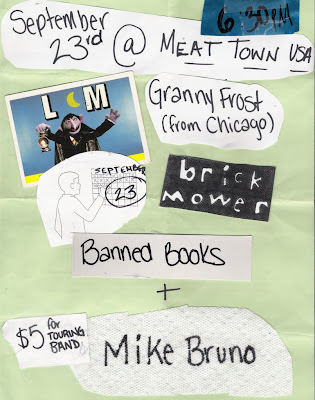 6:30PM
September
23rd @ MEAT TOWN USA
L M
Granny Frost
(from Chicago)
SEPTEMBER
23
brick
mower
Banned Books
+
$5 for
TOURING
BAND
Mike Bruno